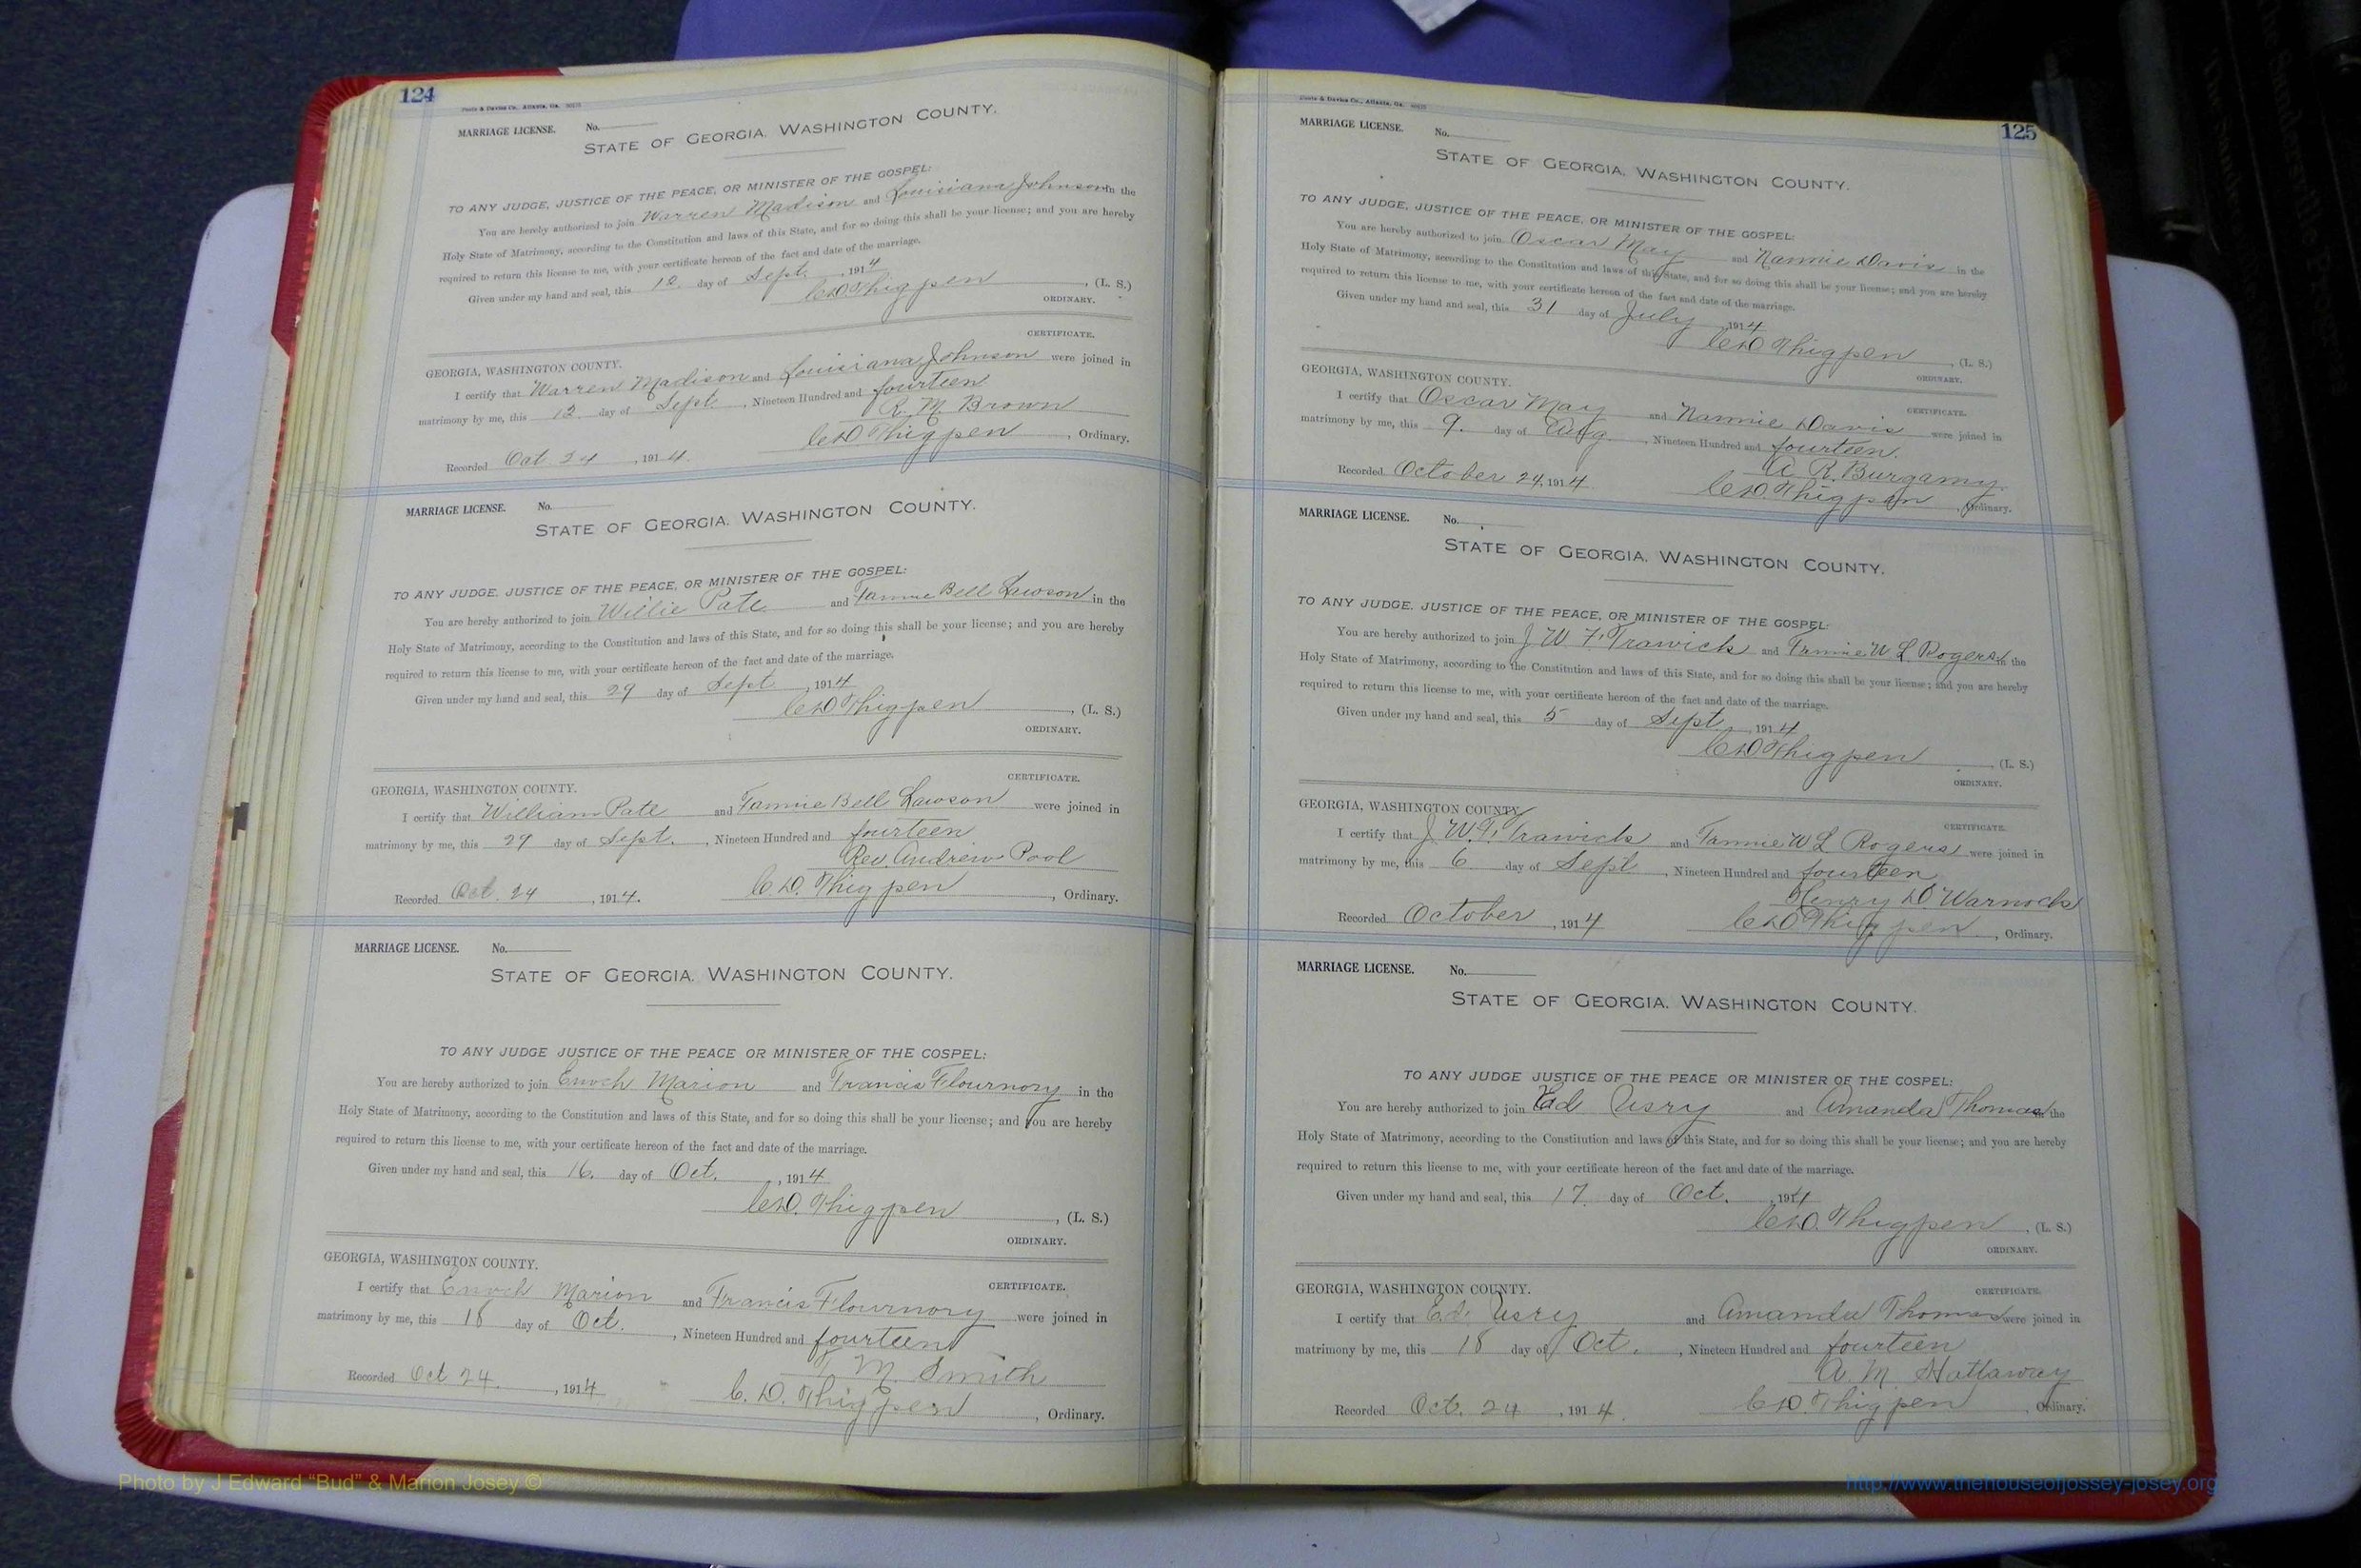 124
MARRIAGE LICENSE. No.
STATE OF GEORGIA. WASHINGTON COUNTY.
TO ANY JUDGE, JUSTICE OF THE PEACE, OR MINISTER OF THE GOSPEL:
You are hereby authorized to join Warren Madison and Louisiana Johnson in the
Holy State of Matrimony, according to the Constitution and laws of this State, and for so doing this shall be your license; and you are hereby
required to return this license to me, with your certificate hereon of the fact and date of the marriage.
Given under my hand and seal, this 12 day of Sept. , 1914
C. D. Thigpen , (L. S.)
ORDINARY.
CERTIFICATE.
GEORGIA, WASHINGTON COUNTY.
I certify that Warren Madison and Louisiana Johnson were joined in
matrimony by me, this 12 day of Sept , Nineteen Hundred and fourteen
R. M. Brown
Recorded Oct 24 , 1914. C. D. Thigpen , Ordinary.
MARRIAGE LICENSE. No.
STATE OF GEORGIA. WASHINGTON COUNTY.
TO ANY JUDGE. JUSTICE OF THE PEACE, OR MINISTER OF THE GOSPEL:
You are hereby authorized to join Willie Pate and Fannie Bell Lawson in the
Holy State of Matrimony, according to the Constitution and laws of this State, and for so doing this shall be your license; and you are hereby
required to return this license to me, with your certificate hereon of the fact and date of the marriage.
Given under my hand and seal, this 29 day of Sept , 1914
C. D. Thigpen , (L. S.)
ORDINARY.
CERTIFICATE.
GEORGIA, WASHINGTON COUNTY.
I certify that William Pate and Fannie Bell Lawson were joined in
matrimony by me, this 29 day of Sept. , Nineteen Hundred and fourteen
Rev Andrew Pool
Recorded Oct. 24 , 1914. C. D. Thigpen , Ordinary.
MARRIAGE LICENSE. No.
STATE OF GEORGIA. WASHINGTON COUNTY.
TO ANY JUDGE JUSTICE OF THE PEACE OR MINISTER OF THE GOSPEL:
You are hereby authorized to join Enoch Marion and Francis Flournory in the
Holy State of Matrimony, according to the Constitution and laws of this State, and for so doing this shall be your license; and you are hereby
required to return this license to me, with your certificate hereon of the fact and date of the marriage.
Given under my hand and seal, this 16. day of Oct. , 1914
C. D. Thigpen , (L. S.)
ORDINARY.
GEORGIA, WASHINGTON COUNTY.
CERTIFICATE.
I certify that Enoch Marion and Francis Flournory were joined in
matrimony by me, this 18 day of Oct. , Nineteen Hundred and fourteen
M. Smith
Recorded Oct 24. , 1914 C. D. Thigpen , Ordinary.
125
MARRIAGE LICENSE. No.
STATE OF GEORGIA. WASHINGTON COUNTY.
TO ANY JUDGE, JUSTICE OF THE PEACE, OR MINISTER OF THE GOSPEL:
You are hereby authorized to join Oscar May and Nannie Davis in the
Holy State of Matrimony, according to the Constitution and laws of this State, and for so doing this shall be your license; and you are hereby
required to return this license to me, with your certificate hereon of the fact and date of the marriage.
Given under my hand and seal, this 31 day of July , 1914
C. D. Thigpen , (L. S.)
ORDINARY.
GEORGIA, WASHINGTON COUNTY.
CERTIFICATE.
I certify that Oscar May and Nannie Davis were joined in
matrimony by me, this 9. day of Aug. , Nineteen Hundred and fourteen.
R. Burgamy
Recorded October 24, 1914 C. D. Thigpen , Ordinary.
MARRIAGE LICENSE. No.
STATE OF GEORGIA. WASHINGTON COUNTY.
TO ANY JUDGE. JUSTICE OF THE PEACE, OR MINISTER OF THE GOSPEL:
You are hereby authorized to join J W F. Trawick and Fannie W L Rogers in the
Holy State of Matrimony, according to the Constitution and laws of this State, and for so doing this shall be your license; and you are hereby
required to return this license to me, with your certificate hereon of the fact and date of the marriage.
Given under my hand and seal, this 5 day of Sept , 1914
C. D. Thigpen , (L. S.)
ORDINARY.
GEORGIA, WASHINGTON COUNTY
CERTIFICATE.
I certify that J. W. F. Trawick and Fannie W L Rogers were joined in
matrimony by me, this 6 day of Sept , Nineteen Hundred and fourteen
Henry D. Warnock
Recorded October , 1914 C. D. Thigpen , Ordinary.
MARRIAGE LICENSE. No.
STATE OF GEORGIA. WASHINGTON COUNTY.
TO ANY JUDGE JUSTICE OF THE PEACE OR MINISTER OF THE GOSPEL:
You are hereby authorized to join Ed Usry and Amanda Thomas in the
Holy State of Matrimony, according to the Constitution and laws of this State, and for so doing this shall be your license; and you are hereby
required to return this license to me, with your certificate hereon of the fact and date of the marriage.
Given under my hand and seal, this 17 day of Oct. , 1914
C. D. Thigpen , (L. S.)
ORDINARY.
GEORGIA, WASHINGTON COUNTY.
CERTIFICATE.
I certify that Ed. Usry and Amanda Thomas were joined in
matrimony by me, this 18 day of Oct. , Nineteen Hundred and fourteen
A. M Hattaway
Recorded Oct. 24 , 1914. C. D. Thigpen , Ordinary.
Photo by J Edward “Bud” & Marion Josey ©
http://www.thehouseofjossey-josey.org